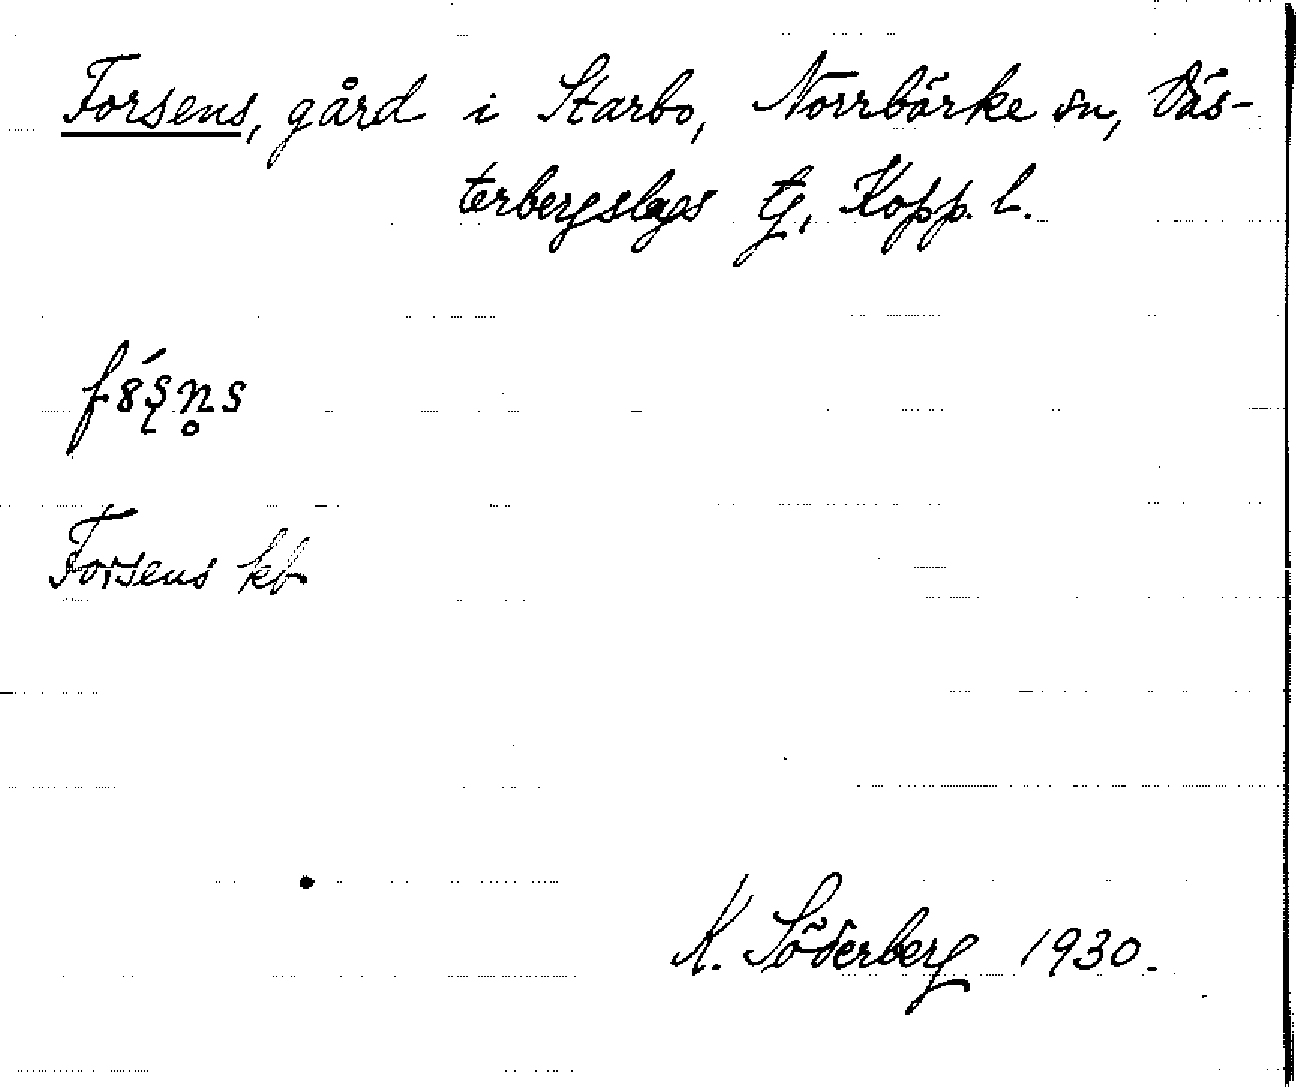 Forsens, gård i Starbo, Norrbärke sn, Väs-
terbergslags tg, Kopp. l.
Forsens kb
K. Söderberg 1930.